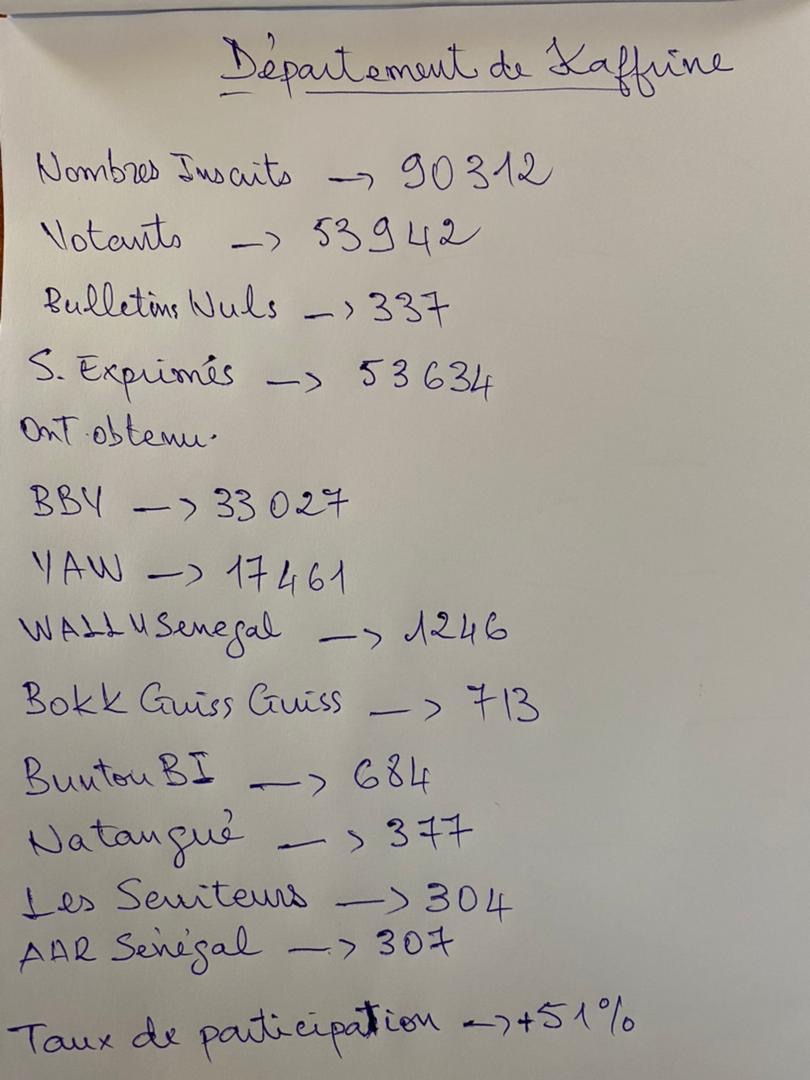 Département de Kaffrine
Nombres Inscrits → 90312
Votants → 53942
Bulletins Nuls → 337
S. Exprimés → 53634
Ont obtenu.
BBY → 33027
YAW → 17461
WALLU Senegal → 1246
Bokk Guiss Guiss → 713
Buntou BI → 684
Natangué → 377
Les Serviteurs → 304
AAR Sénégal → 307
Taux de participation → +51%